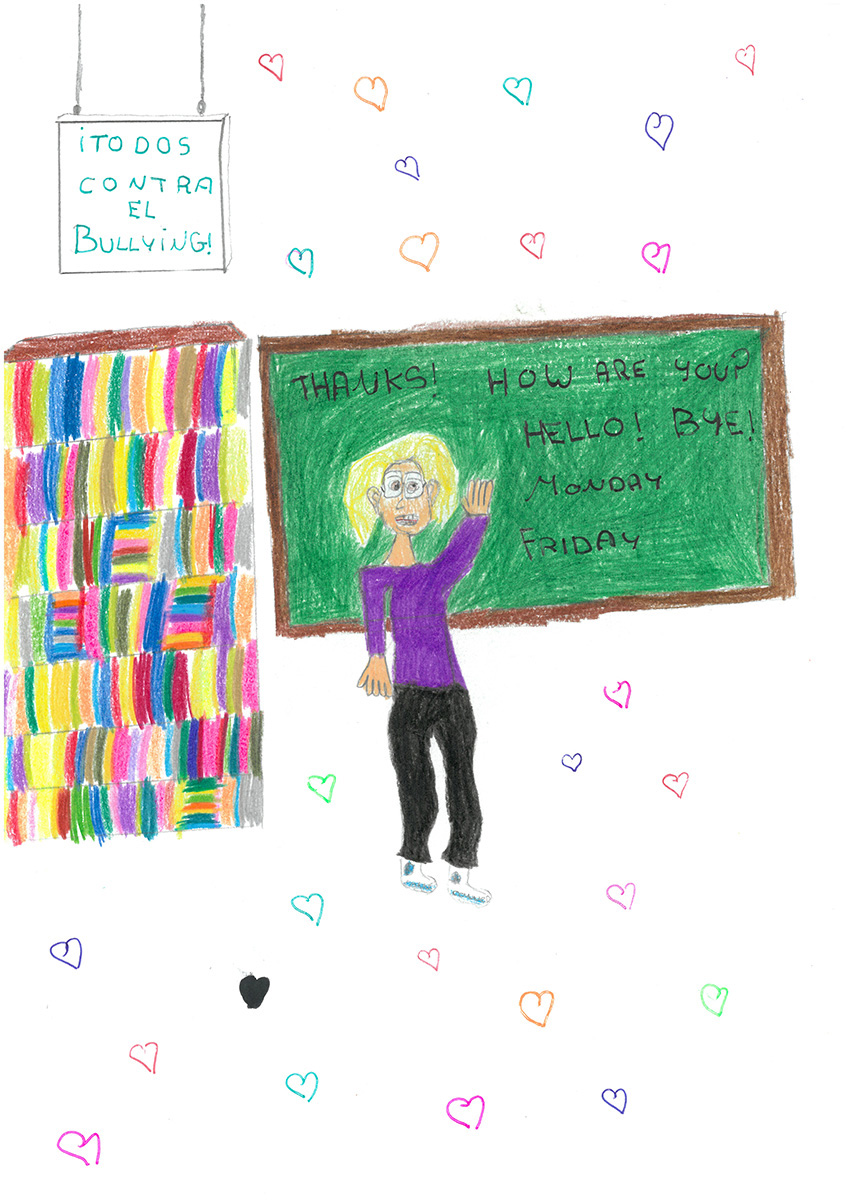 ¡TODOS
CONTRA
EL
BULLYiNG!
THANKS! HOW ARE YOU?
HELLO! BYE!
MONDAY
FRIDAY